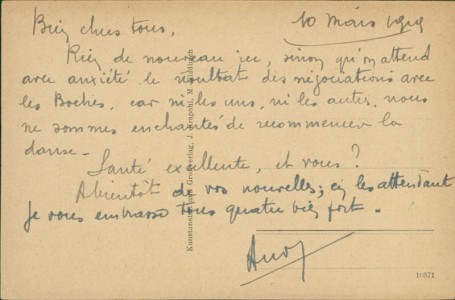 Bien chers tous, 10 Mars 1919
Rien de nouveau ici, sinon qu'on attend
avec anxiété le résultat des négociations avec
les Boches, car ni les uns, ni les autres, nous
ne sommes enchantés de recommencer la
danse.
Santé excellente, et vous ?
A bientôt de vos nouvelles; en les attendant
je vous embrasse tous quatre bien fort.
Kunstanstalt Graph. Verlag, J.
10871